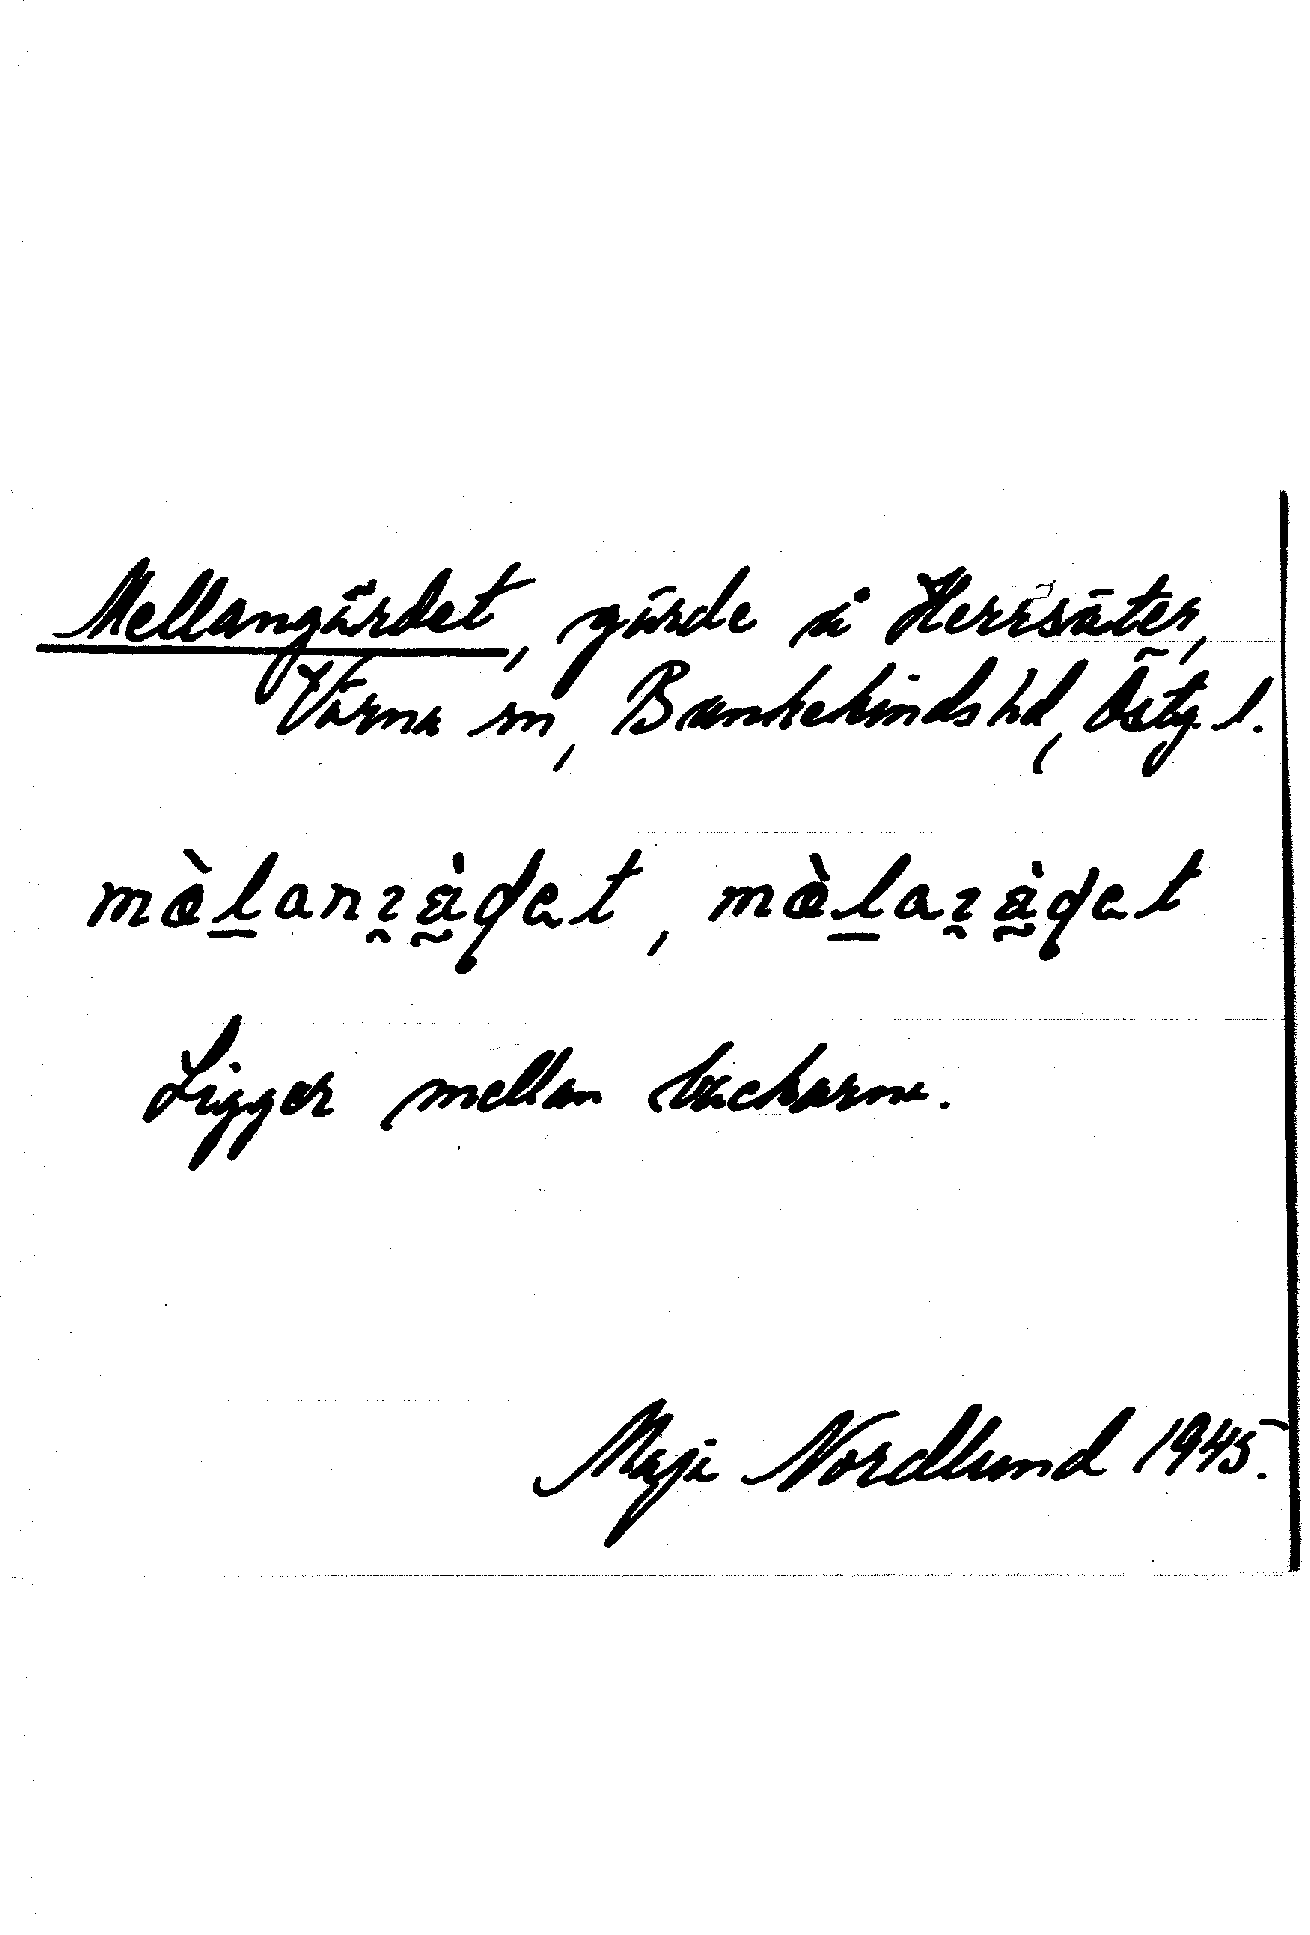 Mellangärdet, gärde å Herrsäter,
Värna sn, Bankekinds hd, Östg. l.
mὰlanɿὰdet, mὰlaɿὰdet
Ligger mellan backarna.
Maja Nordlund 1945.